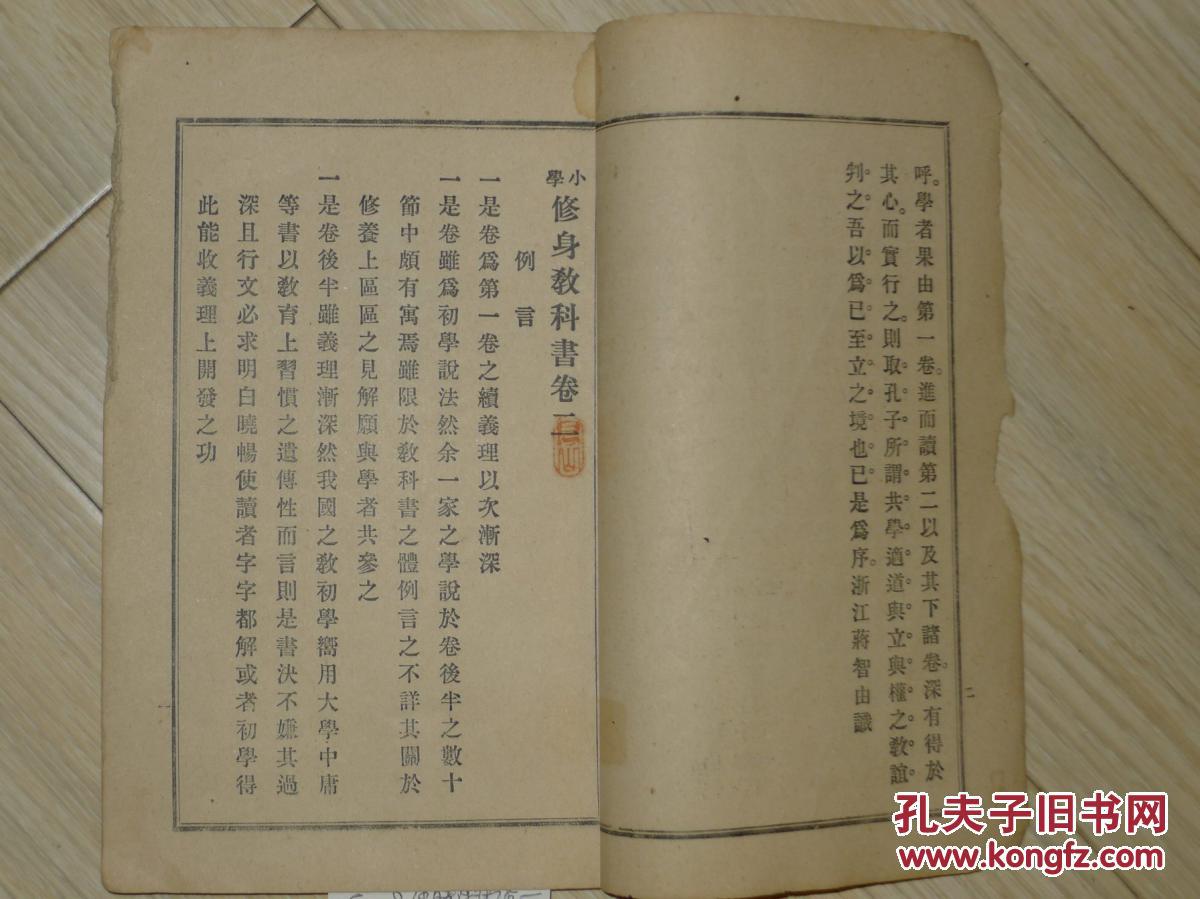 呼。學者果由第一卷。進而讀第二以及其下諸卷。深有得於
其心。而實行之。則取孔子所謂共學適道與立與權之教誼
判之吾以爲已至立之境也已是爲序。浙江蔣智由識
二
小學修身教科書卷二
例言
一是卷爲第一卷之續義理以次漸深
一是卷雖爲初學說法然余一家之學說於卷後半之數十
節中頗有寓焉雖限於教科書之體例言之不詳其關於
修養上區區之見解願與學者共參之
一是卷後半雖義理漸深然我國之教初學嚮用大學中庸
等書以教育上習慣之遺傳性而言則是書決不嫌其過
深且行文必求明白曉暢使讀者字字都解或者初學得
此能收義理上開發之功
一
孔夫子旧书网
www.kongfz.com